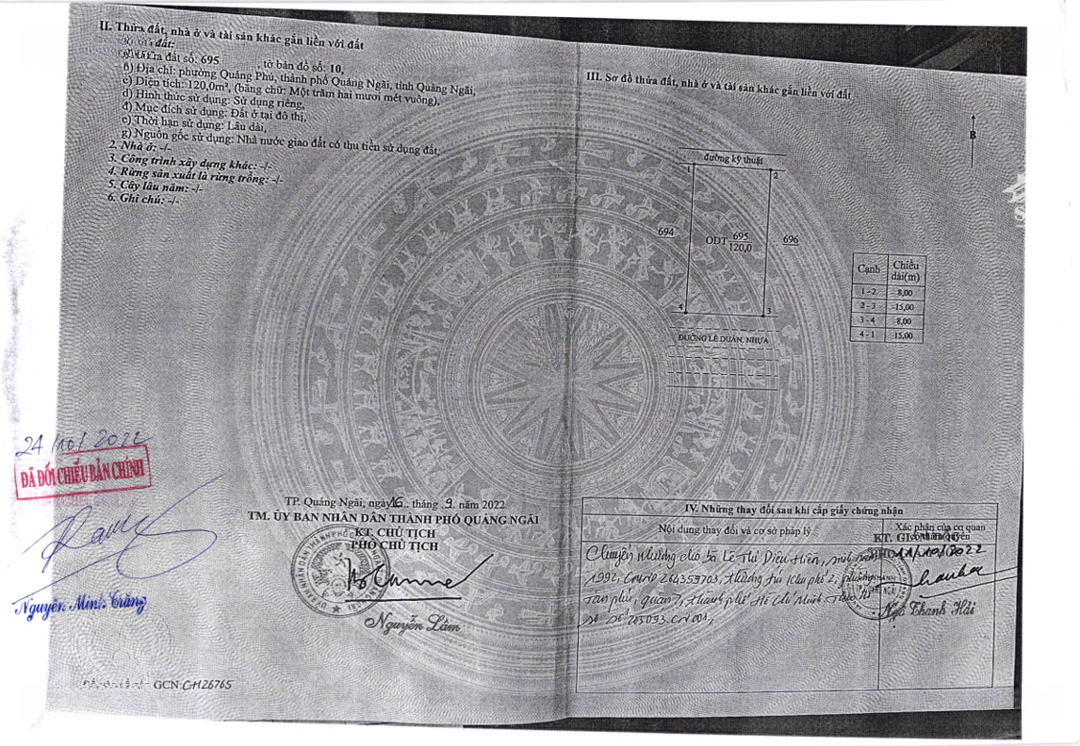 II. Thửa đất, nhà ở và tài sản khác gắn liền với đất
đất:
đất số: 695 , tờ bản đồ số: 10,
b) Địa chỉ: phường Quảng Phú, thành phố Quảng Ngãi, tỉnh Quảng Ngãi,
c) Diện tích: 120,0m², (bằng chữ: Một trăm hai mươi mét vuông),
d) Hình thức sử dụng: Sử dụng riêng,
đ) Mục đích sử dụng: Đất ở tại đô thị,
e) Thời hạn sử dụng: Lâu dài,
g) Nguồn gốc sử dụng: Nhà nước giao đất có thu tiền sử dụng đất;
2. Nhà ở: -/-
3. Công trình xây dựng khác: -/-
4. Rừng sản xuất là rừng trồng: -/-
5. Cây lâu năm: -/-
6. Ghi chú: -/-
24/10/2022
ĐÃ ĐỐI CHIẾU BẢN CHÍNH
Nguyễn Minh Trăng
TP. Quảng Ngãi, ngày 16 tháng 9 năm 2022
TM. ỦY BAN NHÂN DÂN THÀNH PHỐ QUẢNG NGÃI
KT. CHỦ TỊCH
PHÓ CHỦ TỊCH
Nguyễn Lâm
GCN: CH26765
III. Sơ đồ thửa đất, nhà ở và tài sản khác gắn liền với đất
B
đường kỹ thuật
1 2
694 ODT 695 696
120,0
4 3
ĐƯỜNG LÊ DUẨN, NHỰA
Cạnh Chiều dài(m)
1 - 2 8,00
2 - 3 15,00
3 - 4 8,00
4 - 1 15,00
IV. Những thay đổi sau khi cấp giấy chứng nhận
Nội dung thay đổi và cơ sở pháp lý
Xác nhận của cơ quan
KT. GIÁM ĐỐC
11/10/2022
Chuyển nhượng cho bà Lê Thị Diệu Hiền, sinh năm
1992, CMND 264359703, thường trú Khu phố 2, phường
Tân phú, quận 7, thành phố Hồ Chí Minh
số 205093.CN001,
Ngô Thanh Hải